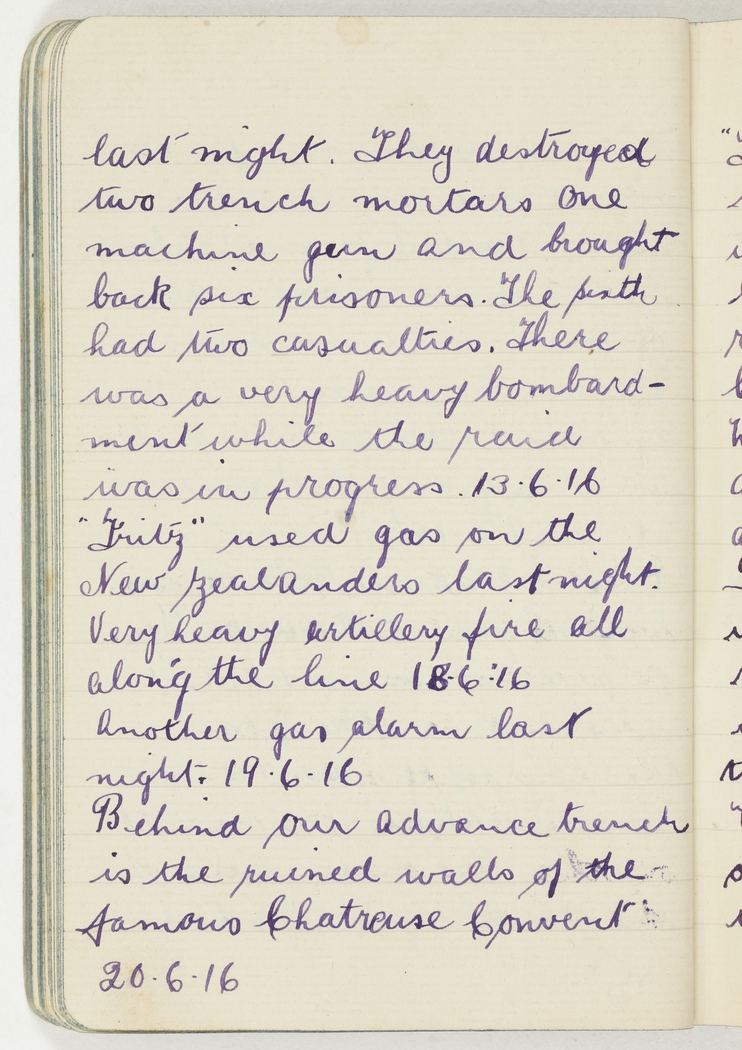 last night. They destroyed
two trench mortars one
machine gun and brought
back six prisoners. The sixth
had two casualties. There
was a very heavy bombard-
ment while the raid
was in progress. 13.6.16
"Fritz" used gas on the
New Zealanders last night.
Very heavy artillery fire all
along the line 18.6.16
Another gas alarm last
night. 19.6.16
Behind our advance trench
is the ruined walls of the
famous Chatreuse Convent
20.6.16